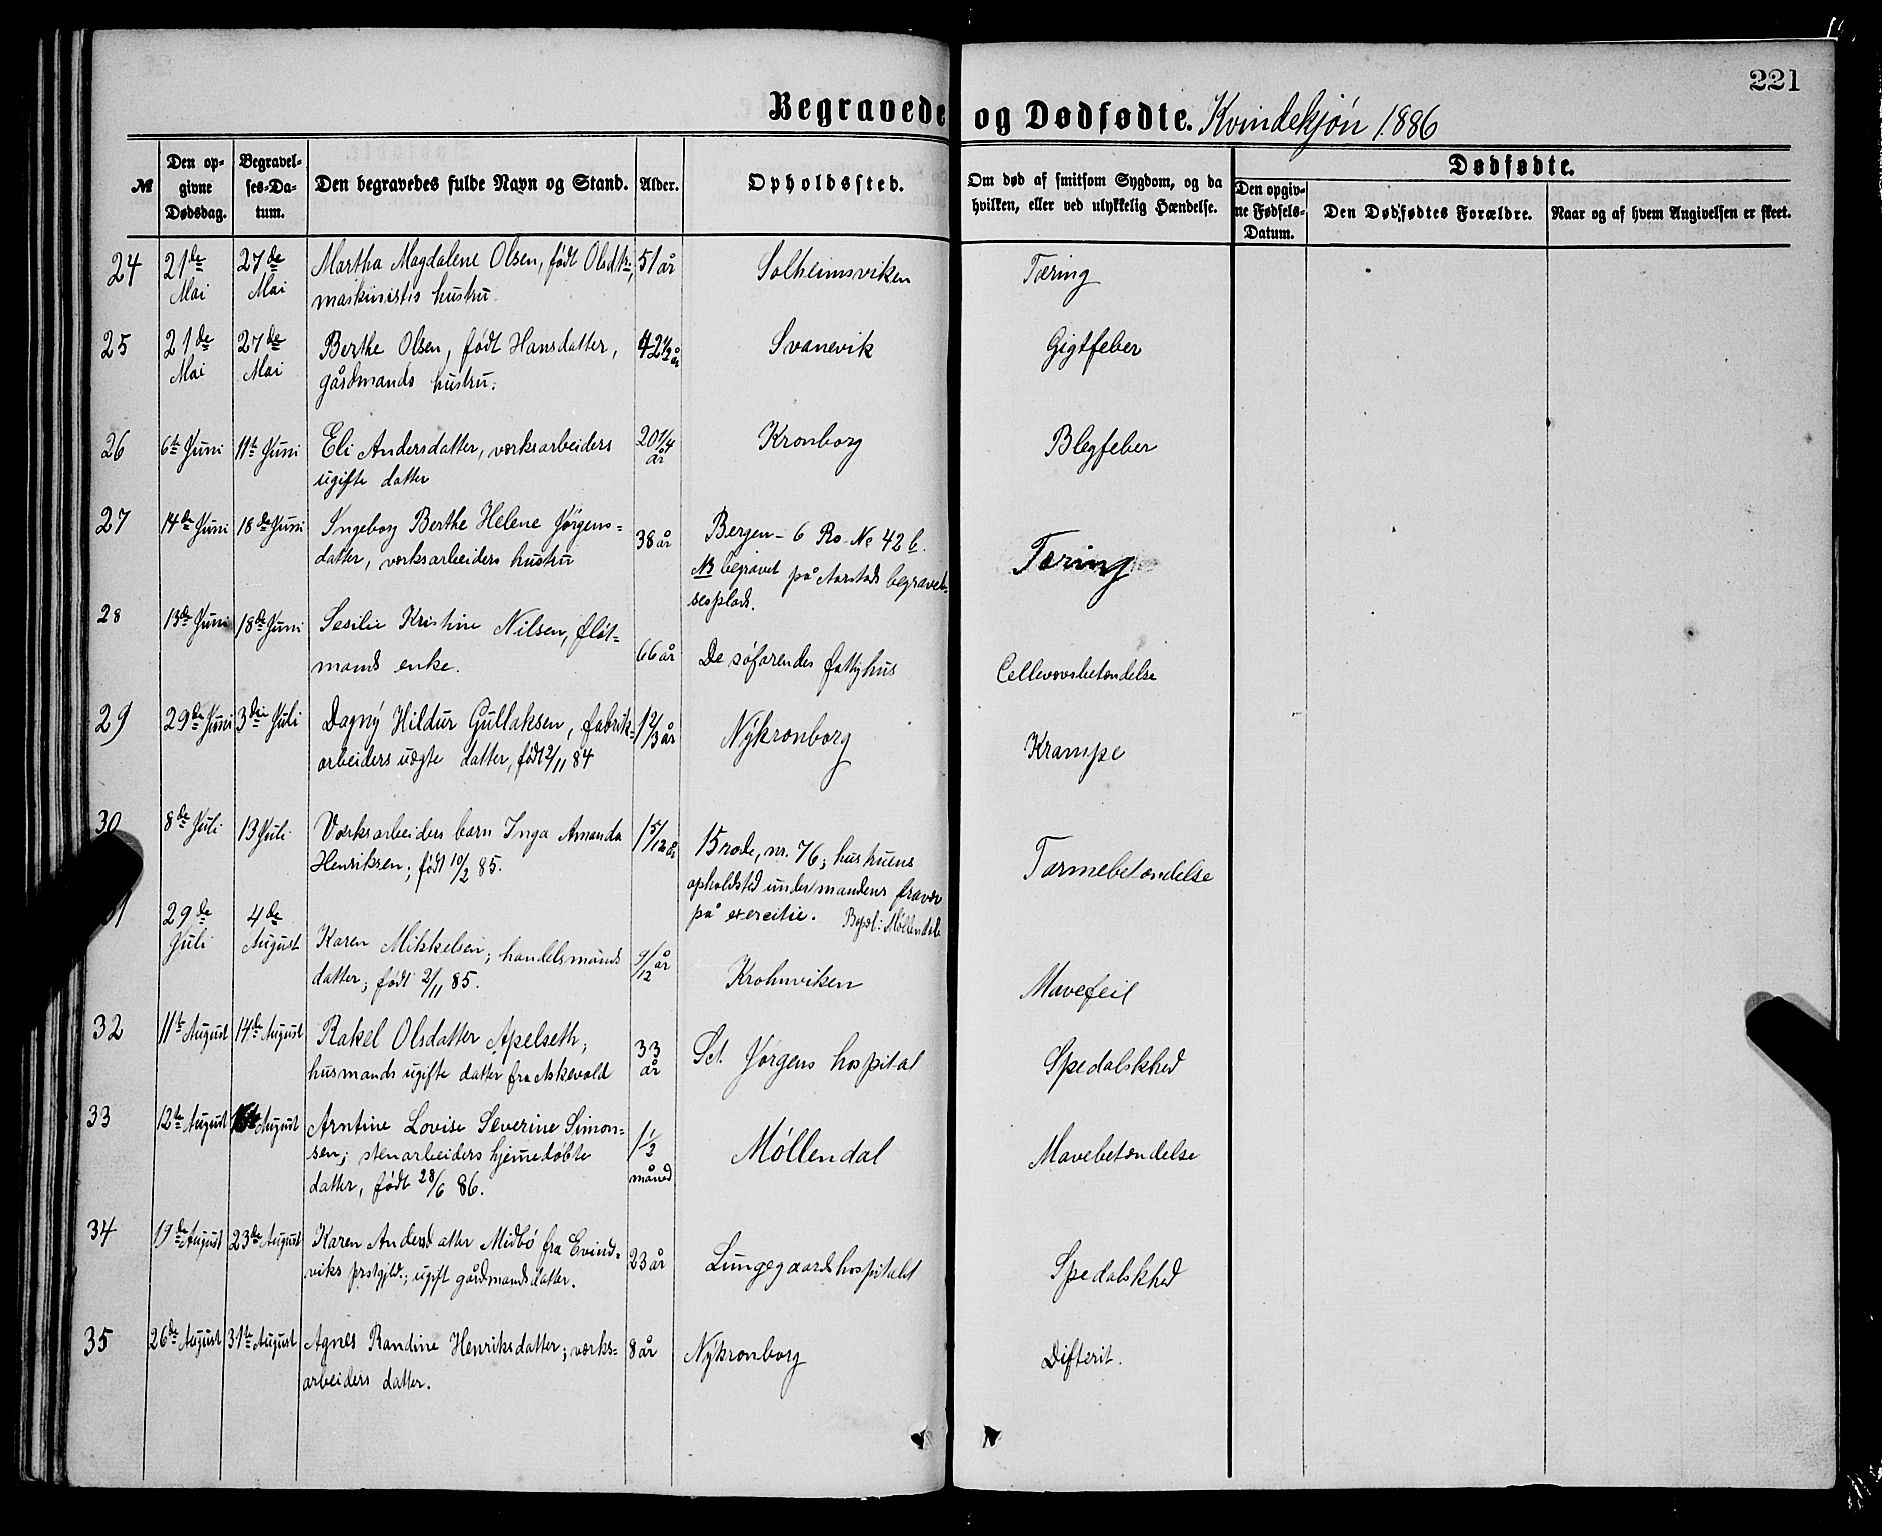 221
Begravede og Dødfødte. Kvindekjøn 1886
№
Den opgivne Dødsdag.
Begravelses-Datum.
Den begravedes fulde Navn og Stand.
Alder.
Opholdssted.
Om død af smitsom Sygdom, og da hvilken, eller ved ulykkelig Hændelse.
Dødfødte.
Den opgivne Fødsels-Datum.
Den Dødfødtes Forældre.
Naar og af hvem Angivelsen er skeet.
24 21de Mai 27de Mai Martha Magdalene Olsen, født 51 år Solheimsviken Tæring
maskinists hustru.
25 21de Mai 27de Mai Berthe Olsen, født Hansdatter, 42 1/2 år Svanevik Gigtfeber
gårdmands hustru.
26 6te Juni 11te Juni Eli Andersdatter, værksarbeiders 20 1/4 år Kronborg Blegfeber
ugifte datter
27 14de Juni 18de Juni Ingeborg Berthe Helene Jørgens= 38 år Bergen - 6 Ro. No 42 b. Tæring
datter, værksarbeiders hustru NB begravet på Aarstads begravel=
sesplads.
28 13de Juni 18de Juni Sesilie Kristine Nilsen, fløt= 66 år De søfarendes fattighus Cellevævsbetændelse
mands enke.
29 29de Juni 3die Juli Dagny Hildur Gullaksen, fabrik= 1 2/3 år Nykronborg Krampe
arbeiders uægte datter, født 2/11 84
30 8de Juli 13 Juli Værksarbeiders barn Inga Amanda 1 5/12 år 15 rode, nr. 76; hustruens Tarmebetændelse
Henriksen; født 10/2 85. opholdsted under mandens fravær
på exercitie. Bopæl: Møllendal
31 29de Juli 4de August Karen Mikkelsen; handelsmands 9/12 år Krohnviken Mavefeil
datter; født 2/11 85.
32 11te August 14de August Rakel Olsdatter Apelseth; 33 år Sct. Jørgens hospital Spedalskhed
husmands ugifte datter fra Askevold
33 12te August 16de August Arntine Lovise Severine Simon= 1 1/2 måned Møllendal Mavebetændelse
sen; stenarbeiders hjemedøbte
datter, født 28/6 86.
34 19de August 23de August Karen Andersdatter Midbø fra Evind= 23 år Lungegaardshospitalet Spedalskhed
viks prstgjld.; ugift gårdmandsdatter.
35 26de August 31te August Agnes Randine Henriksdatter; værks= 8 år Nykronborg Difterit.
arbeiders datter.